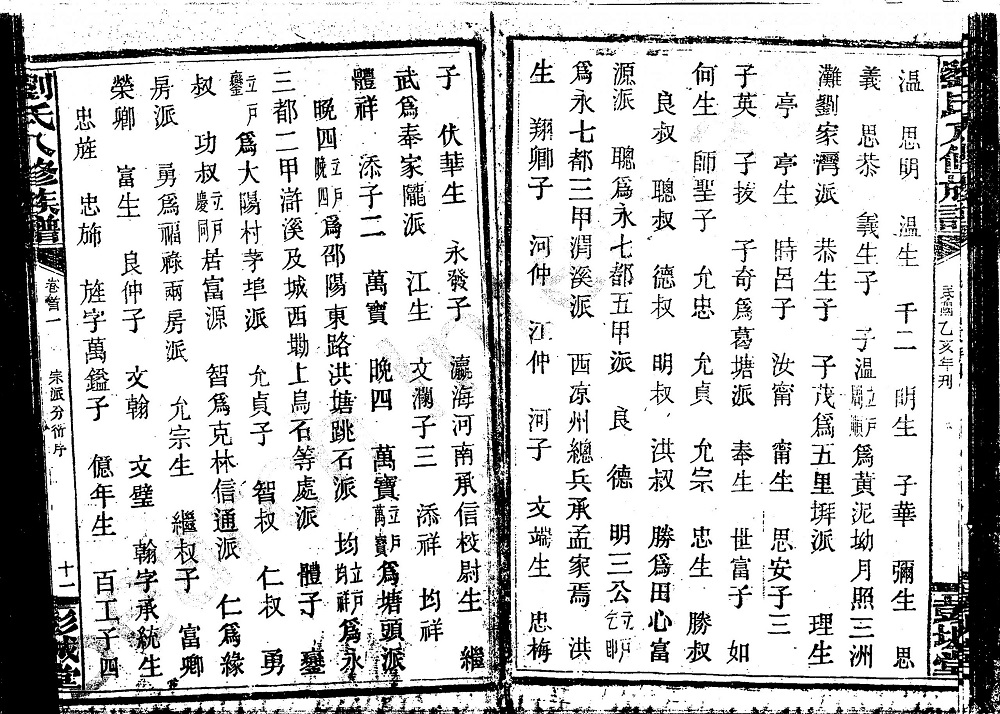 劉氏八修族譜
民國乙亥年刊
彭城堂
温 思明 温生 千二 明生 子華 彌生 思
義 思恭 義生子 子温立戸周順爲黃泥坳月照三洲
灘劉家灣派 恭生子 子茂爲五里塀派 理生
亭 亭生 時呂子 汝甯 甯生 思安子三
子英 子拔 子奇爲葛塘派 奉生 世富子 如
何生 師聖子 允忠 允貞 允宗 忠生 勝叔
良叔 聰叔 德叔 明叔 洪叔 勝爲田心富
源派 聰爲永七都五甲派 良 德 明三公立戸
爲永七都三甲澗溪派 西凉州總兵承孟家焉 洪
生 翔卿子 河仲 江仲 河子 文端生 忠梅
子 伏華生 永發子 瀛海河南承信校尉生 繼
武爲奉家隴派 江生 文瀾子三 添祥 均祥
體祥 添子二 萬寶 晚四 萬寶立戸萬寶爲塘頭派
晚四立戸晚四爲邵陽東路洪塘跳石派 均立戸均祥爲永
三都二甲滸溪及城西塘上烏石等處派 體子 鑾
立戸鑾爲大陽村茅埠派 允貞子 智叔 仁叔 勇
叔 功叔立戸慶同居富源 智爲克林信通派 仁爲緣
房派 勇爲福祿兩房派 允宗生 繼叔子 富卿
榮卿 富生 良仲子 文翰 文璧 翰字承統生
忠旌 忠斾 旌字萬鎰子 億年生 百工子四
劉氏八修族譜
卷首一
宗派分衍序
十二
彭城堂